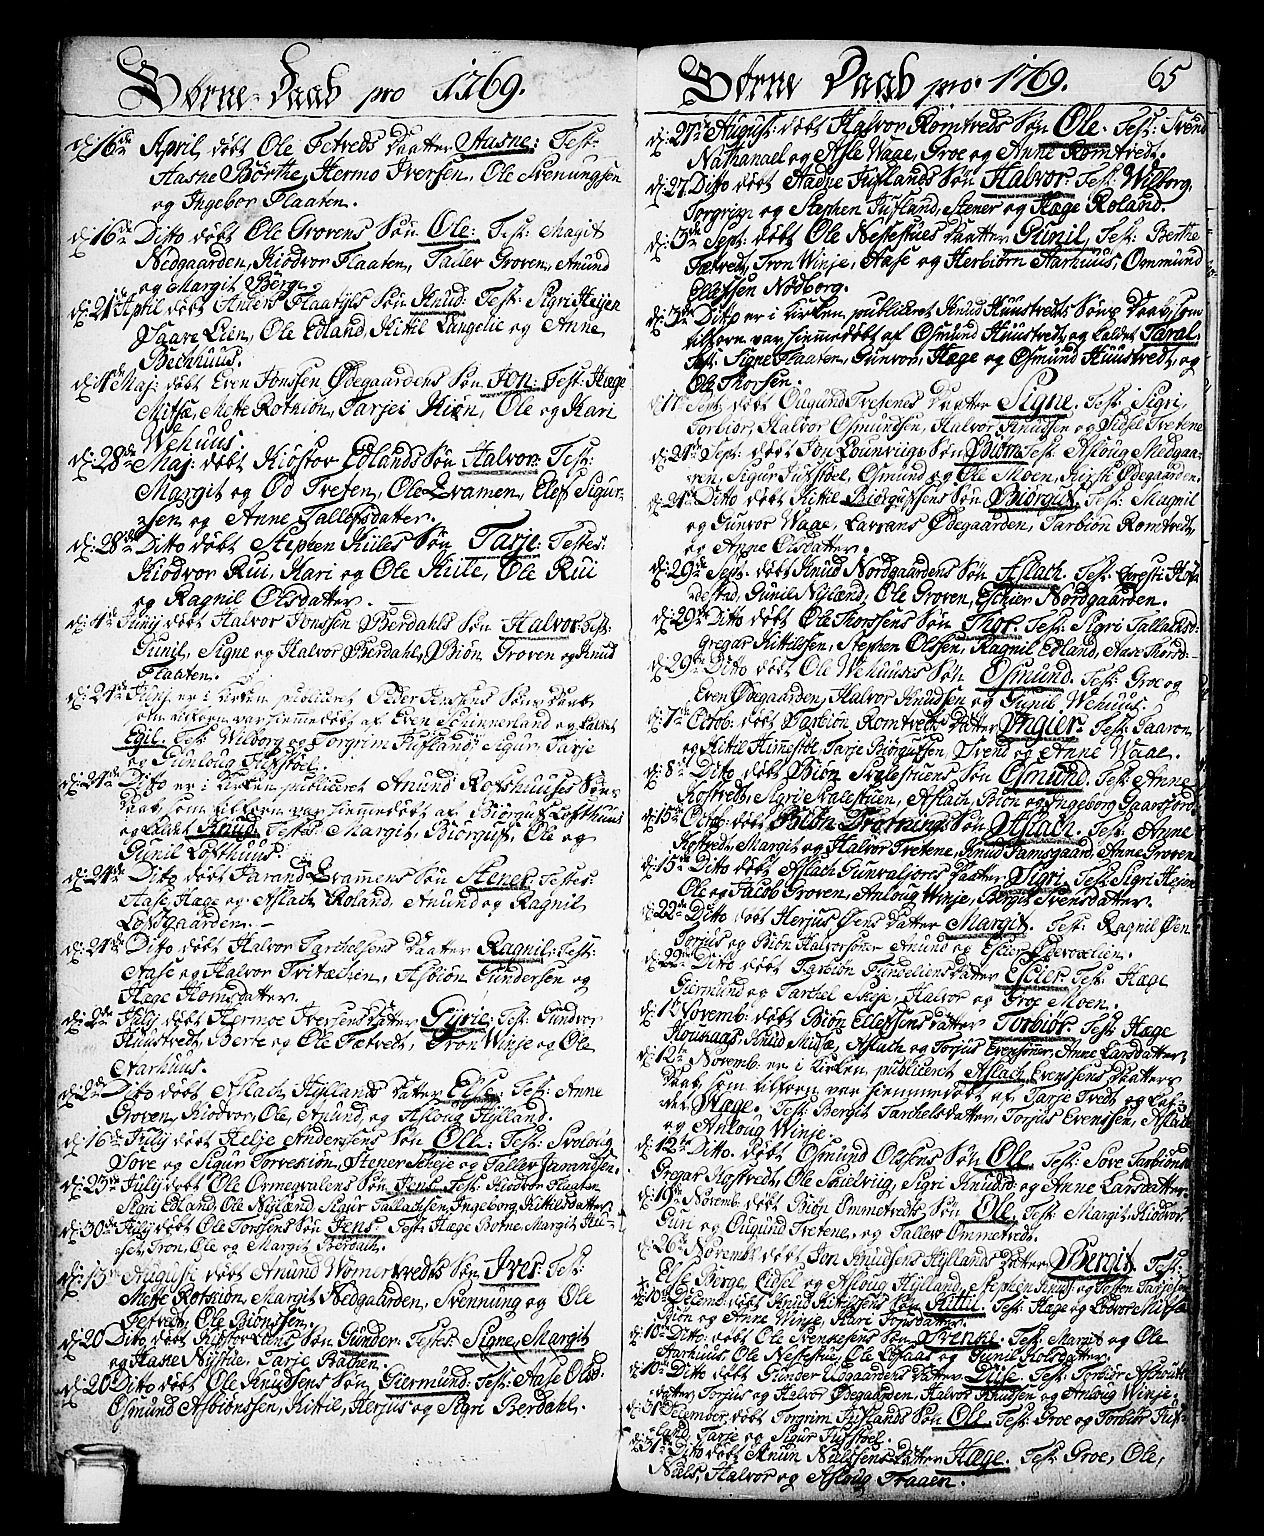 Børne-Daab pro 1769.
d: 16de April døbt Ole Tetveds Daatter Aasne: Test:
Aasne Børthe, Hermo Iversen, Ole Svenungsen
og Ingebor Flaaten.
d: 16de Ditto døbt Ole Grovens Søn Ole: Test: Magit
Nedgaarden, Kiodvor Flaaten, Tallev Groven, Anund
og Margit Berge.
d: 21de April døbt Anders Flaatyls Søn Knud: Test: Sigri Heyen
Saave Lien, Ole Edland, Kittil Langelie og Anne
Bechhuus.
Maj: døbt Even Jonssen Ødegaardens Søn Jon: Test: Hæge
Midsæ, Mete Rotkiøn, Tarjei Kiøn, Ole og Kari
Wehuus.
d: 28de Maj: døbt Kiøstov Edlands Søn Halvor: Test:
Margit og Od Treten, Ole Qvamen, Elef Sigur-
sen og Anne Tallofsdater.
d: 28de Ditto døbt Stephen Kiiles Søn Tarje: Testes:
Kiodvor Rui, Kari og Ole Kiile, Ole Rui
og Ragnil Olsdatter.
Junij døbt Halvor Jonssen Berdahls Søn Halvor Test:
Gunil, Signe og Halvor Berdahl, Biøn Groven og Knud
Flaaten.
d: 24de Junj: er i Kirken publiceret Peder Jensens Søns Daab
som tilforn var hiemmedøbt af Even Schinnerland og kaldet
Egil. Test: Wilborg og Torgrim Jufsland, Sigur, Tarje
og Gunloug Jufsstøel.
d: 24de Ditto er i Kirken publiceret Anund Lofthuuses Søns
Daab, som tilforn var hiemmedøbt af Biørguf Lofthuus
og kaldet Knud. Testes: Margit, Biørguf, Ole og
Gunil Lofthuus.
d: 24de Ditto døbt Farand Qvamens Søn Stener: Testes:
Aase, Hæge og Aslach Roland, Anund og Ragnil
Lofdgaarden.
d: 24de Ditto døbt Halvor Tarchelsens Daater Ragnil: Test:
Aase og Halvor Tvitæchen, Asbiøn Gundersen og
Hæge Homsdatter.
d: 2de Julij døbt Hermoe Iversens Datter Gyrie: Test: Gundvor
Huustvedt, Berte og Ole Tætvedt, Tron Winje og Ole
Aarhuus.
d: 2de Ditto døbt Aslach Hyllands Datter Else: Test: Anne
Groven, Kiodvor, Ole, Anund, og Asloug Hylland.
d: 16de Julij døbt Helje Andersens Søn Ole: Test: Svoloug
Søre og Sigur Torvekiøn, Stener Scheje og Tallev Jarandsen.
d: 23de Julij døbt Ole Ormegvalens Søn Jens. Test: Kiodvor Flaaten
Kari Edland, Ole Nyland, Sigur Tallachsen, Ingeborg Kittilsdatter.
d: 30de Julij døbt Ole Torssens Søn Jens. Test: Hæge Botne, Margit Hu-
set, Tron, Ole og Margit Berdahl.
d: 13de Augusti døbt Anund Wormetvedts Søn Iver: Test:
Mette Rotkiøn, Margit Nedgaarden, Svennung og Ole
Tetvedt, Ole Biønssen.
d: 20 Ditto døbt Kiøstov Liens Søn Gunder. Testes: Signe, Margit
og Aasne Nystue, Tarje Bachen.
d: 20 Ditto døbt Ole Knudsens Søn Giermund: Test: Aase Olsd.
Osmund Asbiønssen, Kittil, Herjus og Sigri Berdahl.
Børne Daab pro: 1769. 65
d: 27de August: døbt Halvor Romtveds Søn Ole. Test: Svend
Nathanael og Asle Wage, Groe og Anne Romtvedt.
d: 27 Ditto døbt Aadne Jufslands Søn Halvor: Test: Wilborg,
Torgrim og Stephen Jufsland, Stener og Hæge Roland.
d: 3de Sept: døbt Ole Nesestues Daatter Gunil, Test: Berthe
Tætvedt, Tron Winje, Aase og Herbiørn Aarhuus, Ommund
Olafssen Nodborg.
d: 3de Ditto er i Kirken publiceret Knud Huustvedts Søns Daab, som
tilforn var hiemmedøbt af Osmund Huustvedt og kaldet Taral.
Test: Signe Flaaten, Gunvor, Hæge og Osmund Huustvedt, og
Ole Thorsen.
Sept: døbt Ougund Tvetenes Daatter Signe. Test: Sigri,
Torbiør, Halvor Osmundsen, Halvor Knudsen og Sidsel Tvetene
d: 21de Sept: døbt Jon Lounviigs Søn Biøn Test: Asloug Medgaar-
den, Sigur Jufsstøel, Osmund og Ole Moen, Kirsti Ødegaarden.
d: 21de Ditto døbt Kittil Biørgufsens Søn Biørguf, Test: Magnil
og Gunvor Waae, Lavrans Ødegaarden, Tarbiøn Romtvedt
og Anne Olsdatter.
d: 29de Sept: døbt Knud Nordgaardens Søn Aslach. Test: Gresti Hof-
destad, Gunil Nyland, Ole Groven, Eschier Nordgaarden.
d: 29de Ditto døbt Ole Thorssens Søn Thor. Test: Sigri Tallachsd.
Gregar Kittelsen, Stephen Olssen, Ragnil Edland, Aase Thord.
d: 29de Ditto døbt Ole Wehuuses Søn Osmund. Test: Groe og
Even Ødegaarden, Halvor Knudsen og Gunil Wehuus.
d: 7de Octob: døbt Tarbiøn Romtvedts Datter Yngier. Test: Saavon
og Kittil Himestøl, Tarje Biørgufsen, Svens og Anne Waae.
d: 8de Ditto døbt Biøn Svalestuens Søn Osmund. Test: Anne
Hostvedt, Sigri Svalestuen, Aslach, Biøn og Ingeborg Gaarsjord.
d: 15de Octob: døbt Biøn Drotnings Søn Aslach. Test: Anne
Hostvedt, Margit og Halvor Tvetene, Knud Samsgaard, Anne Groven
d: 15de Ditto døbt Aslach Gunvalsjores Daatter Sigri Test: Sigri Heyen
Ole og Jacob Groven, Anloug Winje, Bergit Svensdatter.
d: 22de Ditto døbt Herjus Øens Datter Margit. Test: Ragnil Øen
Torjus og Biøn Halvorsøner Anund og Eschier Ødevælien.
d: 29de Ditto døbt Tarbiøn Gundelins Datter Eschier Test: Hæge
Giermund og Tarchel Skeje, Halvor og Groe Moen.
d: 1de Novemb: døbt Biøn Ellefsens Datter Torbiør. Test: Hæge
Housaas, Knud Midsæ, Aslach og Torjus Evensøner, Anne Larsdatter.
d: 12te Novemb: er i Kirken publiceret Aslach Evensens Daatters
Daab, som tilforn var hiemmedøbt af Tarje Tvedt og kal-
det Wæge. Test: Bergit Tarchelsdatter, Torjus Evenssen, Aslach
og Anloug Winje.
d: 12te Ditto. døbt Osmund Olsens Søn Ole. Test: Søve Tarbiønsd
Gregar Hostvedt, Ole Skielvrig, Sigri Knudsd. og Anne Larsdatter.
d: 19de Novemb: døbt Biøn Ommetveds Søn Ole, Test: Margit, Kiodvor
Guri og Ougund Tvetene, og Tallev Ommetvedt.
d: 26de Novemb: døbt Jon Knudsens Hyllands Datter Bergit. Test:
Else Berge, Eidsel og Asloug Hylland, Stephen Knuds: og Tosten Tarjesen
d: 10de Decemb: døbt Knud Kittilsens Søn Kittil. Test: Hæge og Lodvor Midsæ
Biøn og Anne Winje, Kari Jonsdatter.
d: 10de Ditto. døbt Ole Svenkesens Søn Svenke. Test: Margit og Ole
Aarhuus, Ole Nesestue, Ole Lofsaas og Gunil Rolsdatter.
d: 10de Ditto døbt Gunder Udgaardens Datter Dise. Test: Torbiør Aslouds-
datter, Torjus og Halvor Ødegaarden, Halvor Knudsen og Anloug Winje.
d: 31 December døbt Torgrim Jufslands Søn Ole. Test: Groe og Torbiør Juf-
sland, Tarje og Sigur Jufsstoel.
d: 31te Ditto døbt Anun Nielssens Datter Hæge. Test: Groe, Ole,
Niels, Halvor og Asloug Traaen.